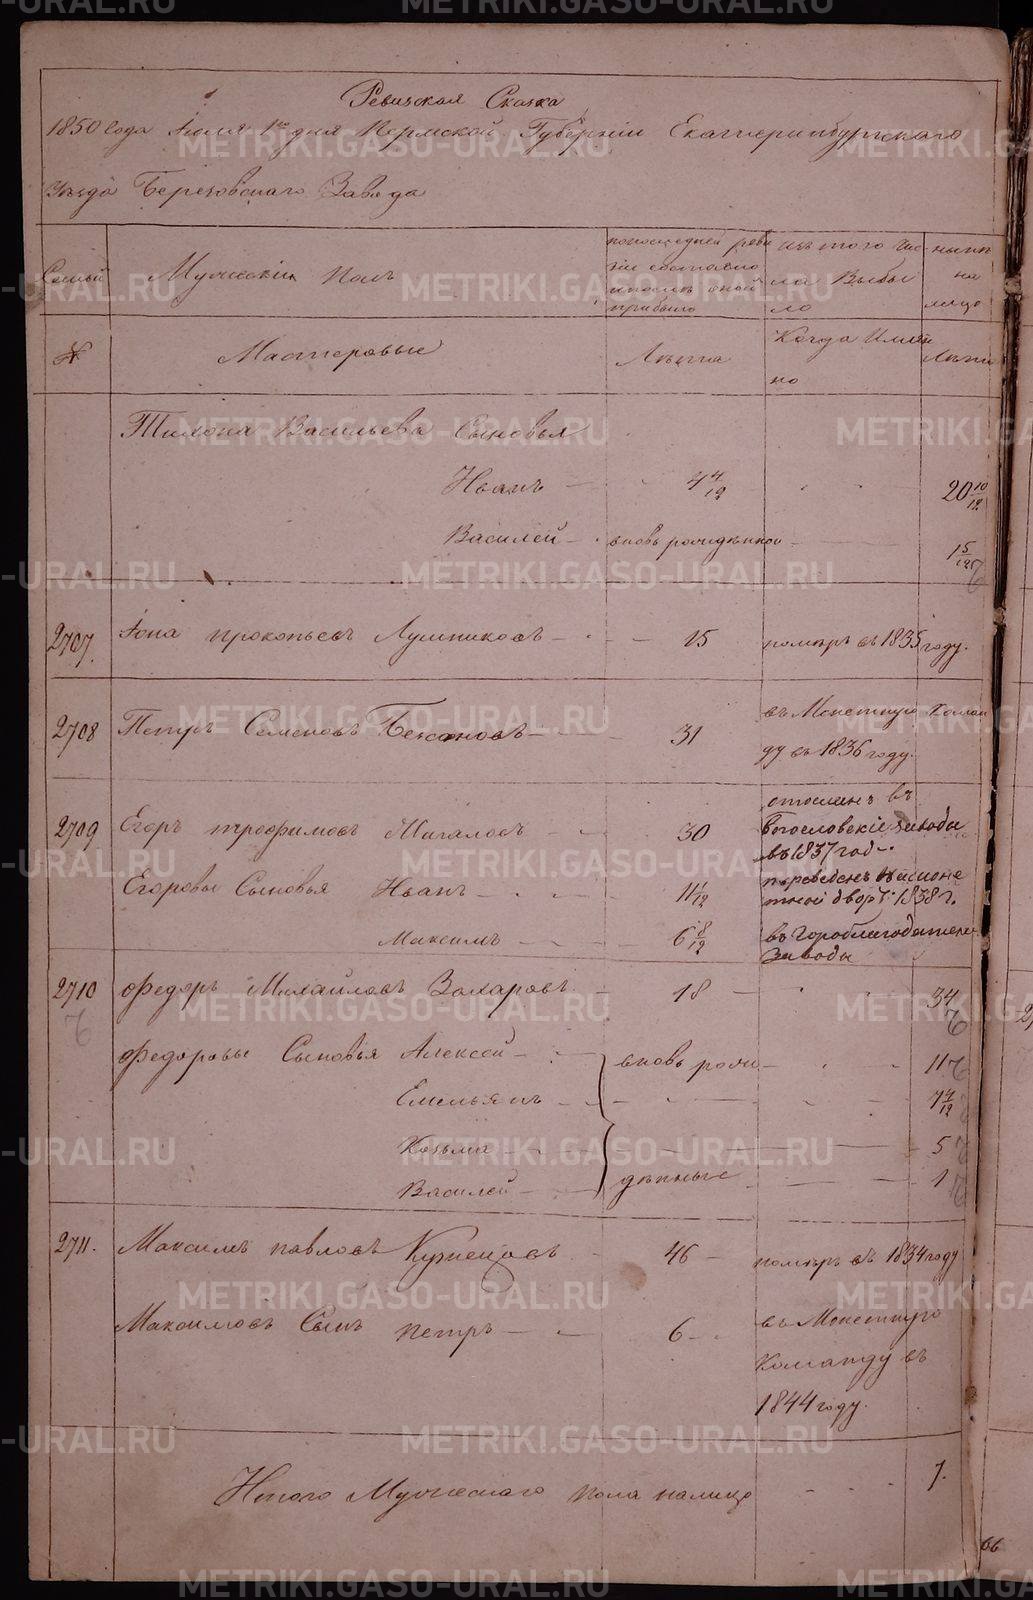 Ревизская Сказка
1850 года Іюля 1го дня Пермской Губерніи Екатеринбургскаго
Уезда Березовскаго Завода
Семьи
Мужескій полъ
попоследней реви
зіи состояло
ипосле оной
прибыло
изъ того чис
ла выбы
ло
ныне
на
лицо
№
Мастеровые
Лѣта
Когда имен
но
Лѣта
Тихона Васильева Сыновья
Иванъ 4 4/12 20 10/12
Василей вновь рожденной 1 5/12
2707. Іона прокопьевъ Лумпиковъ 15 померъ въ 1835 году.
2708 Петръ Семеновъ Бексановъ 31 въ Монетную Коман
ду въ 1836 году.
2709 Егоръ трофимовъ Мигаловъ 30 отосланъ въ
Богословскіе заводы
въ 1837 год
Егоровы Сыновья Иванъ 11 1/12 переведенъ въ моне
тной дворъ 1838 г.
Максимъ 6 8/12 въ Гороблагодатские
Заводы
2710 Федоръ Михайловъ Захаровъ 18 34
Федоровы Сыновья Алексей вновь рож 11
Емельянъ 7 4/12
Козьма 5
Василей денные 1
2711. Максимъ павловъ Кузнецовъ 46 померъ въ 1834 году
Максимовъ Сынъ петръ 6 въ Монетную
Команду въ
1844 году.
Итого Мужескаго пола налицо 7.
66
METRIKI.GASO-URAL.RU